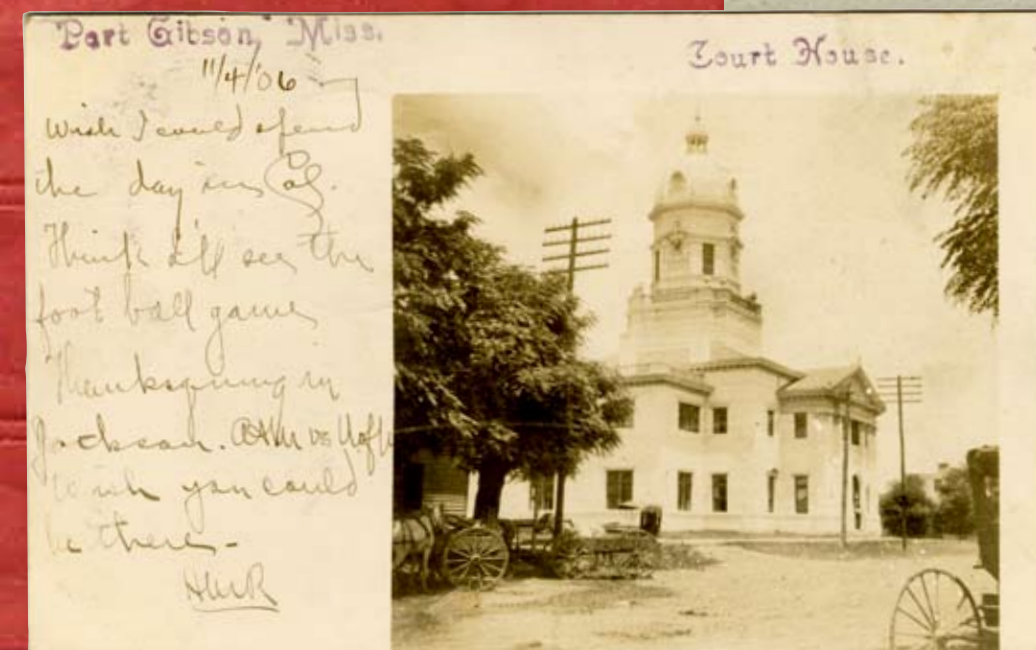 Port Gibson, Miss.
Court House.
11/4/06
Wish I could spend
the day in Col.
Think I'll see the
foot ball game
Thanksgiving in
Jackson. A&M vs
Wish you could
be there -
HWR